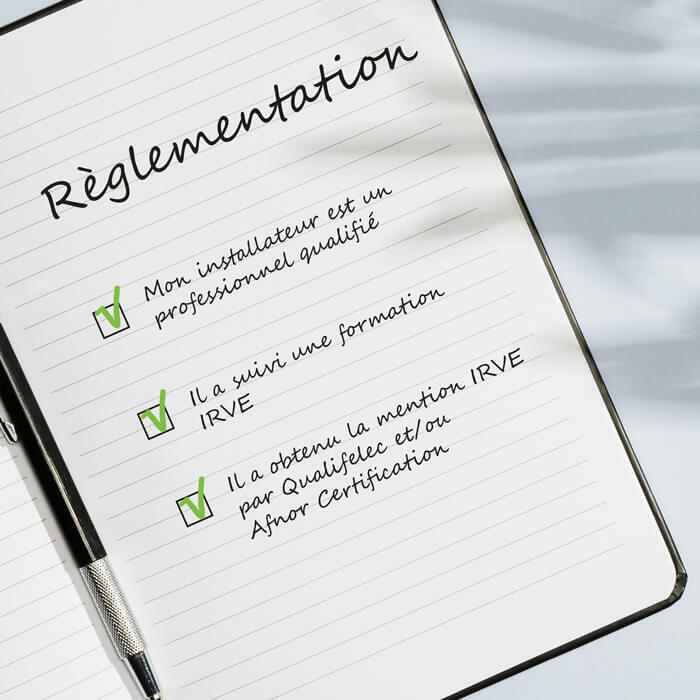 Règlementation
Mon installateur est un
professionnel qualifié
Il a suivi une formation
IRVE
Il a obtenu la mention IRVE
par Qualifelec et/ou
Afnor Certification